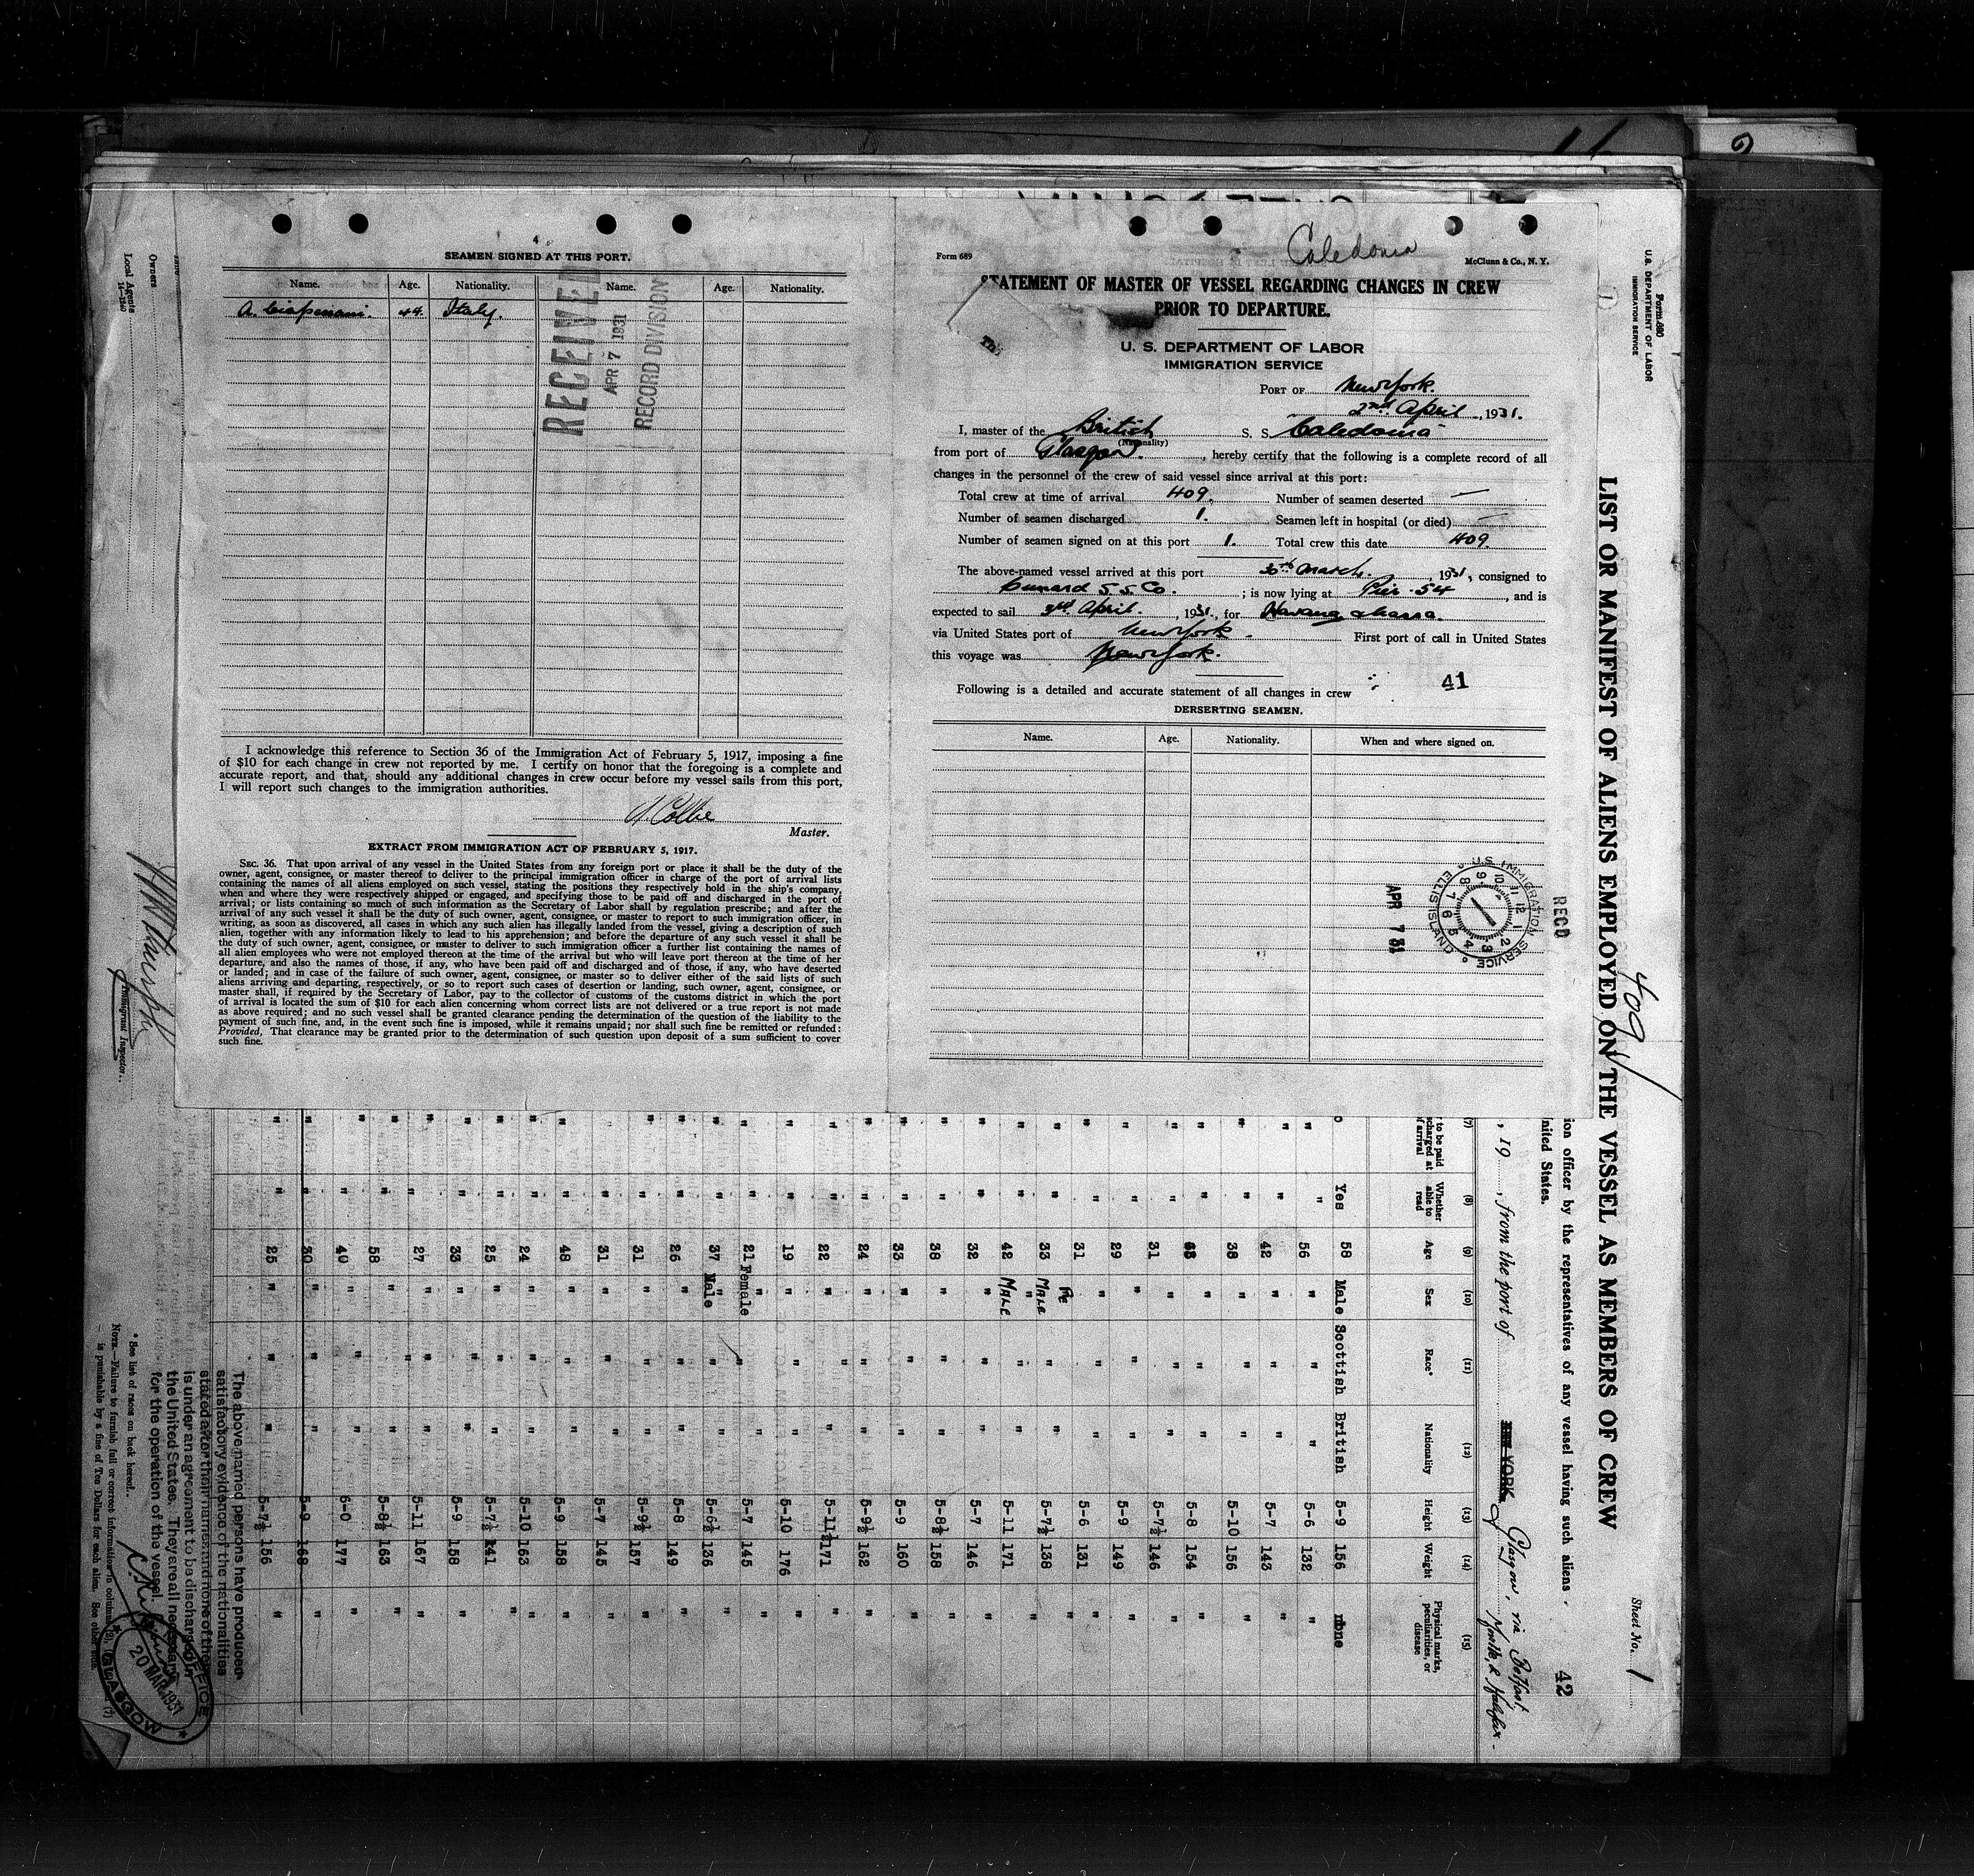 4
SEAMEN SIGNED AT THIS PORT.
Name. Age. Nationality. Name. Age. Nationality.
A. 44. Italy.
RECEIVED
APR 7 1931
RECORD DIVISION
I acknowledge this reference to Section 36 of the Immigration Act of February 5, 1917, imposing a fine
of $10 for each change in crew not reported by me. I certify on honor that the foregoing is a complete and
accurate report, and that, should any additional changes in crew occur before my vessel sails from this port,
I will report such changes to the immigration authorities.
Collie
Master.
EXTRACT FROM IMMIGRATION ACT OF FEBRUARY 5, 1917.
SEC. 36. That upon arrival of any vessel in the United States from any foreign port or place it shall be the duty of the
owner, agent, consignee, or master thereof to deliver to the principal immigration officer in charge of the port of arrival lists
containing the names of all aliens employed on such vessel, stating the positions they respectively hold in the ship's company,
when and where they were respectively shipped or engaged, and specifying those to be paid off and discharged in the port of
arrival; or lists containing so much of such information as the Secretary of Labor shall by regulation prescribe; and after the
arrival of any such vessel it shall be the duty of such owner, agent, consignee, or master to report to such immigration officer, in
writing, as soon as discovered, all cases in which any such alien has illegally landed from the vessel, giving a description of such
alien, together with any information likely to lead to his apprehension; and before the departure of any such vessel it shall be
the duty of such owner, agent, consignee, or master to deliver to such immigration officer a further list containing the names of
all alien employees who were not employed thereon at the time of the arrival but who will leave port thereon at the time of her
departure, and also the names of those, if any, who have been paid off and discharged and of those, if any, who have deserted
or landed; and in case of the failure of such owner, agent, consignee, or master so to deliver either of the said lists of such
aliens arriving and departing, respectively, or so to report such cases of desertion or landing, such owner, agent, consignee, or
master shall, if required by the Secretary of Labor, pay to the collector of customs of the customs district in which the port
of arrival is located the sum of $10 for each alien concerning whom correct lists are not delivered or a true report is not made
as above required; and no such vessel shall be granted clearance pending the determination of the question of the liability to the
payment of such fine, and, in the event such fine is imposed, while it remains unpaid; nor shall such fine be remitted or refunded:
Provided, That clearance may be granted prior to the determination of such question upon deposit of a sum sufficient to cover
such fine.
Caledonia
Form 689 McClunn & Co., N. Y.
STATEMENT OF MASTER OF VESSEL REGARDING CHANGES IN CREW
PRIOR TO DEPARTURE.
U. S. DEPARTMENT OF LABOR
IMMIGRATION SERVICE
PORT OF New York.
2nd April, 1931.
I, master of the British S. S. Caledonia
(Nationality)
from port of Glasgow., hereby certify that the following is a complete record of all
changes in the personnel of the crew of said vessel since arrival at this port:
Total crew at time of arrival 409. Number of seamen deserted —
Number of seamen discharged 1. Seamen left in hospital (or died) —
Number of seamen signed on at this port 1. Total crew this date 409.
The above-named vessel arrived at this port 30th March, 1931, consigned to
Cunard S.S. Co.; is now lying at Pier 54, and is
expected to sail 3rd April. 1931, for Havana
via United States port of New York. First port of call in United States
this voyage was New York.
41
Following is a detailed and accurate statement of all changes in crew
DERSERTING SEAMEN.
Name. Age. Nationality. When and where signed on.
U.S. IMMIGRATION SERVICE
ELLIS ISLAND
1 2 3 4 5 6 7 8 9 10 11 12
APR 7 31
RECD
Form 680
U. S. DEPARTMENT OF LABOR
IMMIGRATION SERVICE
LIST OR MANIFEST OF ALIENS EMPLOYED ON THE VESSEL AS MEMBERS OF CREW
409
Sheet No. 1
42
ion officer by the representatives of any vessel having such aliens
nited States.
, 19 , from the port of NEW YORK Glasgow, via Belfast
(7) (8) (9) (10) (11) (12) (13) (14) (15)
to be paid
charged at
of arrival
Whether able to read
Age
Sex
Race*
Nationality
Height
Weight
Physical marks, peculiarities, or disease
o Yes 58 Male Scottish British 5-9 156 none
" " 56 " " " 5-6 132 "
" " 42 " " " 5-7 143 "
" " 38 " " " 5-10 156 "
" " " " " 5-8 154 "
" " 31 " " " 5-7½ 146 "
" " 29 " " " 5-9 149 "
" " 31 " " 5-6 131 "
" " 33 MALE " " 5-7½ 138 "
" " 42 MALE " " 5-11 171 "
" " 32 " " " 5-7 146 "
" " 38 " " " 5-8½ 158 "
" " 33 " " " 5-9 160 "
" " 24 " " " 5-9½ 162 "
" " 22 " " " 5-11½ 171 "
" " 19 " " " 5-10 176 "
" " 21 Female " " 5-7 145 "
" " 37 Male " " 5-6½ 136 "
" " 26 " " " 5-8 149 "
" " 31 " " " 5-9½ 157 "
" " 31 " " " 5-7 145 "
" " 48 " " " 5-9 158 "
" " 24 " " " 5-10 163 "
" " 25 " " " 5-7½ 141 "
" " 33 " " " 5-9 158 "
" " 27 " " " 5-11 167 "
" " 58 " " " 5-8½ 163 "
" " 40 " " " 6-0 177 "
" " 30 " " " 5-9 168 "
" " 25 " " " 5-7½ 156 "
The above named persons have produced
satisfactory evidence of the nationalities
stated after their names and none of them
is under an agreement to be discharged in
the United States. They are all necessary
for the operation of the vessel.
* See list of races on back hereof.
NOTE.—Failure to furnish full or correct information in columns
is punishable by a fine of Ten Dollars for each alien. See other side.
20 MAR 1931
GLASGOW
Immigrant Inspector.
Owners
Local Agents
14—1840